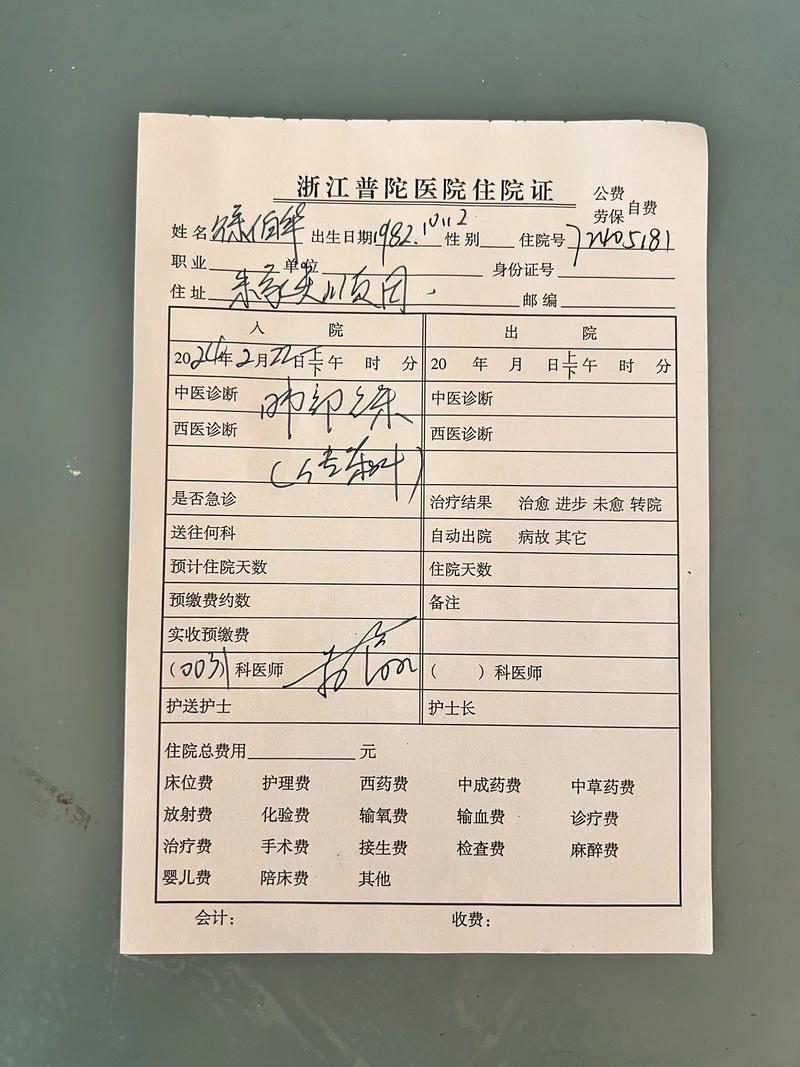 浙江普陀医院住院证
公费
劳保 自费
姓名 徐伯华 出生日期 1982.10.12 性别 住院号 72405181
职业 单位 身份证号
住址 朱家尖 邮编
入 院 出 院
2024年2月22日上/下午 时 分 20 年 月 日上/下午 时 分
中医诊断 中医诊断
西医诊断 肺部 西医诊断
是否急诊 治疗结果 治愈 进步 未愈 转院
送往何科 自动出院 病故 其它
预计住院天数 住院天数
预缴费约数 备注
实收预缴费
(003)科医师 ( )科医师
护送护士 护士长
住院总费用 元
床位费 护理费 西药费 中成药费 中草药费
放射费 化验费 输氧费 输血费 诊疗费
治疗费 手术费 接生费 检查费 麻醉费
婴儿费 陪床费 其他
会计： 收费：